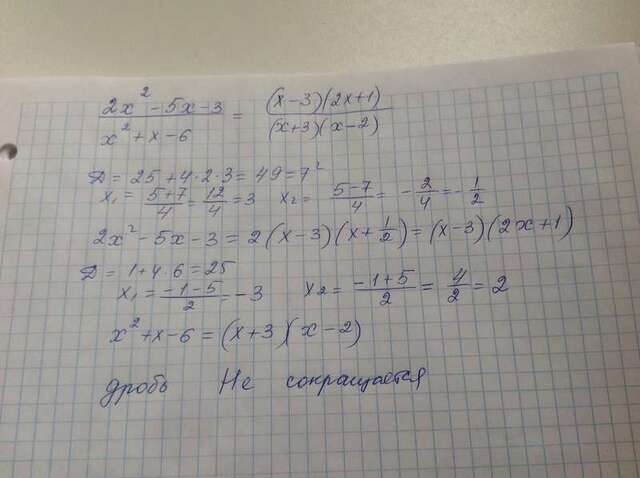 (2x² - 5x - 3)/(x² + x - 6) = ((x-3)(2x+1))/((x+3)(x-2))
D = 25 + 4·2·3 = 49 = 7²
x₁ = (5+7)/4 = 12/4 = 3 x₂ = (5-7)/4 = -2/4 = -1/2
2x² - 5x - 3 = 2(x-3)(x+1/2) = (x-3)(2x+1)
D = 1+4·6 = 25
x₁ = (-1-5)/2 = -3 x₂ = (-1+5)/2 = 4/2 = 2
x² + x - 6 = (x+3)(x-2)
дробь Не сокращается